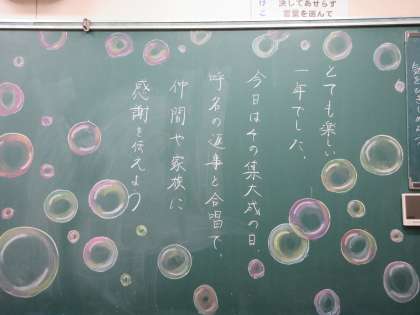 とても楽しい
一年でした。
今日は4の集大成の日。
呼名の返事と合唱で、
仲間や家族に
感謝を伝えよう
決してあせらず
言葉を選んで